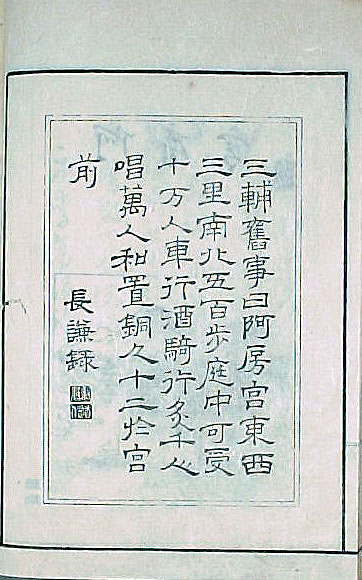 三輔舊事曰阿房宮東西
三里南北五百步庭中可受
十万人車行酒騎行炙千人
唱萬人和置銅人十二於宮
前
長謙錄